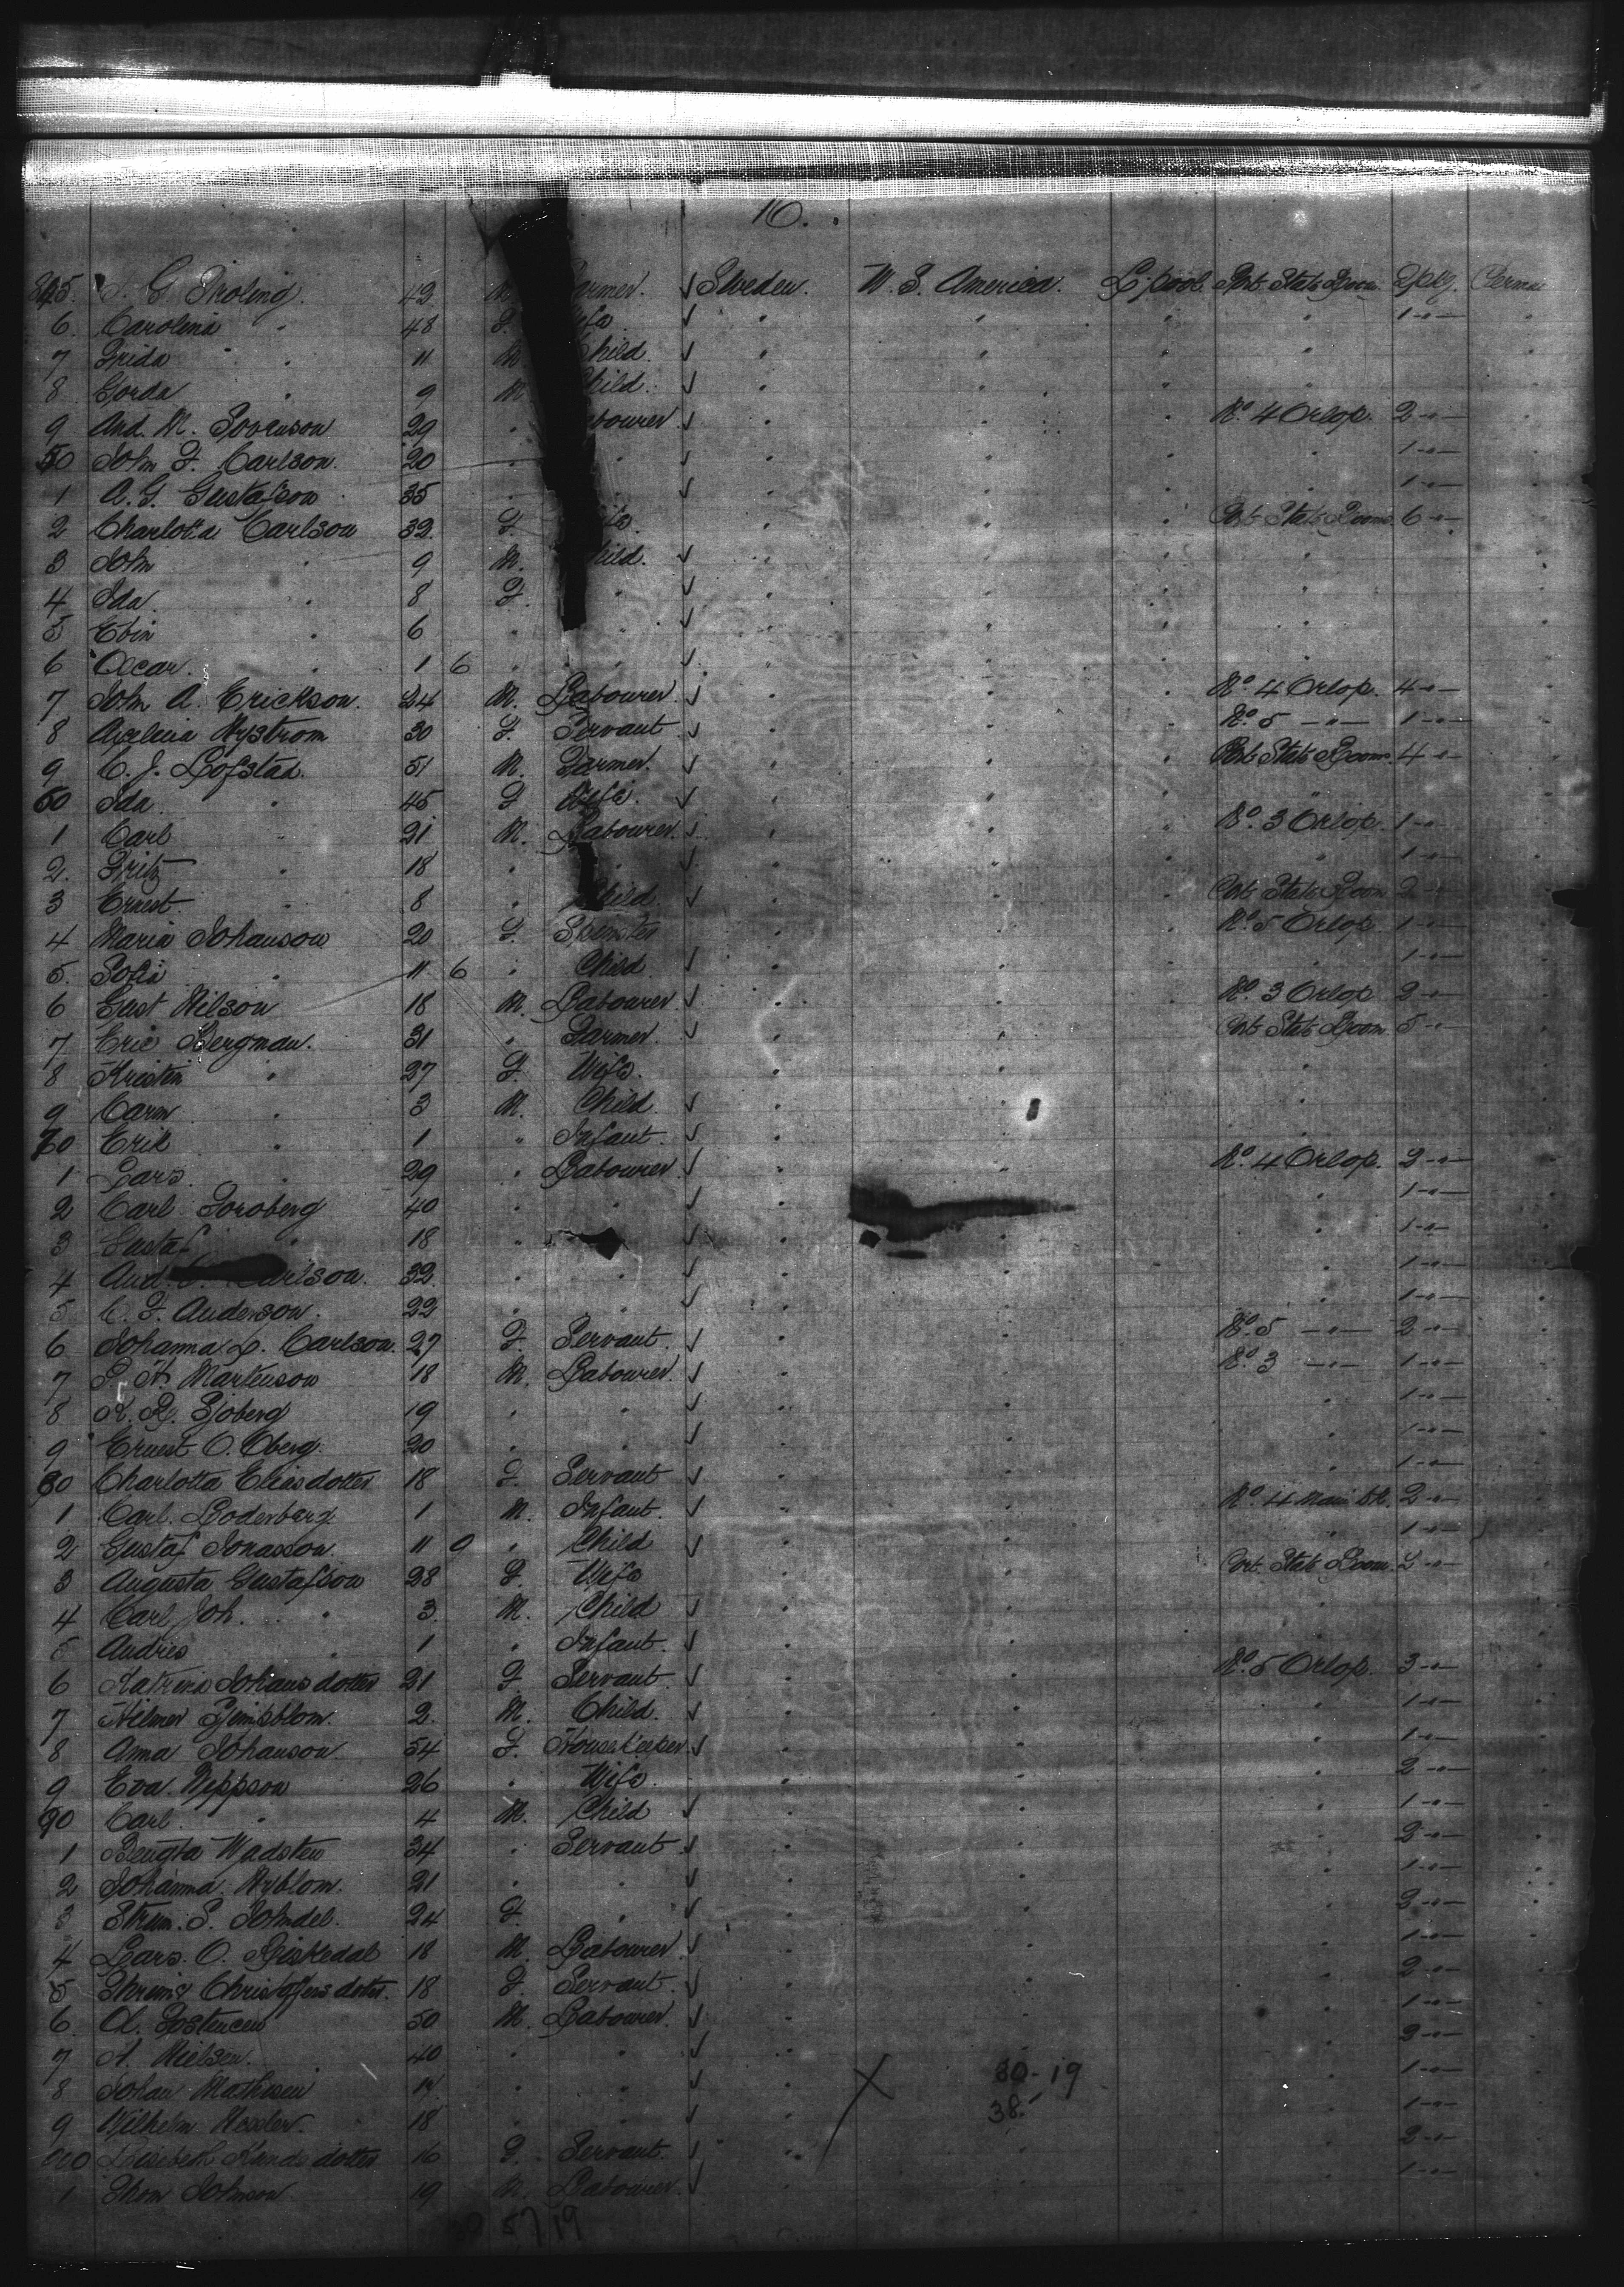 16.
845. G. Froling. 42 M Farmer. √ Sweden. U. S. America. L'pool. Port State Room. 2 Pkg.
6. Carolina " 48 F. Wife √ " " " " 1 -"-
7 Frida " " 11 M Child. √ " " " "
8 Gorda " 9 M Child. √ " " " "
9 And. M. Sorenson 29 " Labourer √ " " " No. 4 Orlop. 2 -"-
50 John F. Carlson. 20 " " √ " " " " 1 -"-
1 A. G. Gustafson 35 " √ " " " " 1 -"-
2 Charlotta Carlson 32. F. Wife. " " " Port State Room. 6 -"-
3 John " 9 M. Child. √ " " " "
4 Ida. " 8 F. " √ " " " "
5 Ebin " 6 " " √ " " " "
6 Oscar. " 1 6 " " √ " " " "
7 John A. Erickson. 24 M. Labourer √ " " " No. 4 Orlop. 4 -"-
8 Avelina Nystrom 30 F. Servant √ " " " No. 5 -"- 1 -"-
9 C. J. Lofstad. 51 M. Farmer. √ " " " Port State Room. 4 -"-
60 Ida. " 45 F Wife. √ " " " "
1 Carl " 21 M. Labourer. √ " " " No. 3 Orlop. 1 -"-
2. Fritz " 18 " " √ " " " " 1 -"-
3 Ernest. " 8 " Child √ " " " Port State Room 2 -"-
4 Maria Johanson 20 F. Spinster " " " No. 5 Orlop 1 -"-
5. Sofia " 11 6 " Child √ " " " " 1 -"-
6 Gust Nilson 18 M. Labourer √ " " " No. 3 Orlop 2 -"-
7 Eric Bergman. 31 " Farmer √ " " " Port State Room 5 -"-
8 Kristin " 27 F. Wife. " " " "
9 Carin " 3 M. Child √ " " " "
70 Erik " 1 " Infant √ " " " "
1 Lars. " 29 " Labourer √ " " " No. 4 Orlop. 2 -"-
2 Carl Soroberg 40 " " √ " " 1 -"-
3 Gustaf " 18 " √ " " 1 -"-
4 And. Carlson. 32 " " √ " " 1 -"-
5 C. F. Anderson. 22 " " √ " " 1 -"-
6 Johanna L. Carlson. 27 F. Servant √ " " No. 5 -"- 2 -"-
7 P. H. Martenson 18 M. Labourer √ " " No. 3 -"- 1 -"-
8 K. R. Sjoberg 19 " " √ " " " 1 -"-
9 Ernest O. Oberg. 20 " " √ " " " 1 -"-
80 Charlotta Eliasdotter 18 F. Servant √ " " " 1 -"-
1 Carl. Boderberg. 1 M. Infant. √ " " No. 4 Main Dk. 2 -"-
2 Gustaf Jonasson. 11 0 " Child √ " " " 1 -"-
3 Augusta Gustafson 28 F. Wife " " Port State Room. 2 -"-
4 Carl Joh. " 3. M. Child √ " "
5 Andres " 1 " Infant. √ " "
6 Katrina Johansdotter 21 F Servant √ " " No. 5 Orlop. 3 -"-
7 Hilmer 2. M. Child. √ " " " 1 -"-
8 Anna Johanson 54 F. Housekeeper √ " " " 1 -"-
9 Eva Neppson 26 " Wife. " " " 2 -"-
90 Carl. " 4 M. Child √ " " " 1 -"-
1 Bengta Wadsten 34 " Servant √ " " " 2 -"-
2 Johanna Nyblom. 21 " " √ " " " 1 -"-
3 S. 24 F. " √ " " " 2 -"-
4 Lars. O. 18 M. Labourer √ " " " 1 -"-
5 Christofersdotter. 18 F. Servant √ " " " 2 -"-
6. Ol. 50 M. Labourer √ " " " 1 -"-
7 A. Nielsen. 40 " " √ " " 2 -"-
8 Johan Mathisen √ X 30-19 " 1 -"-
9 Wilhelm 18 " " √ 38. " 1 -"-
900 dotter 16 F. Servant. √ " " " 2 -"-
1 Thom Johnson 19 M. Labourer. √ " " " 1 -"-
5719